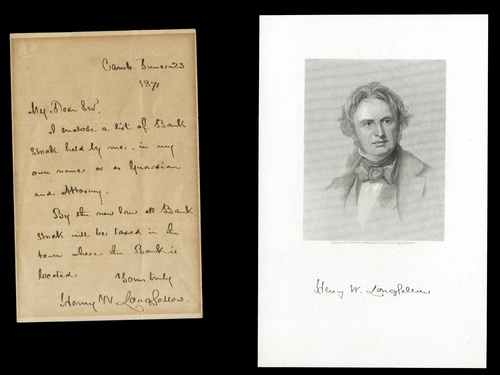 Camb. June 23
1871
My Dear Sir,
I enclose a list of Bank
Stock held by me, in my
own name or as Guardian
and Attorney.
By the new law all Bank
Stock will be taxed in the
town where the Bank is
located.
Yours truly
Henry W. Longfellow
Henry W. Longfellow